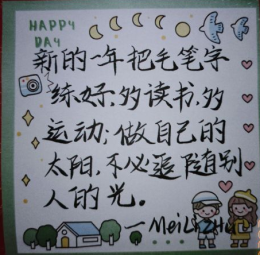 HAPPY
DAY
新的一年把毛笔字
练好;多读书,多
运动;做自己的
太阳,不必追随别
人的光。
—MeiLiZHu